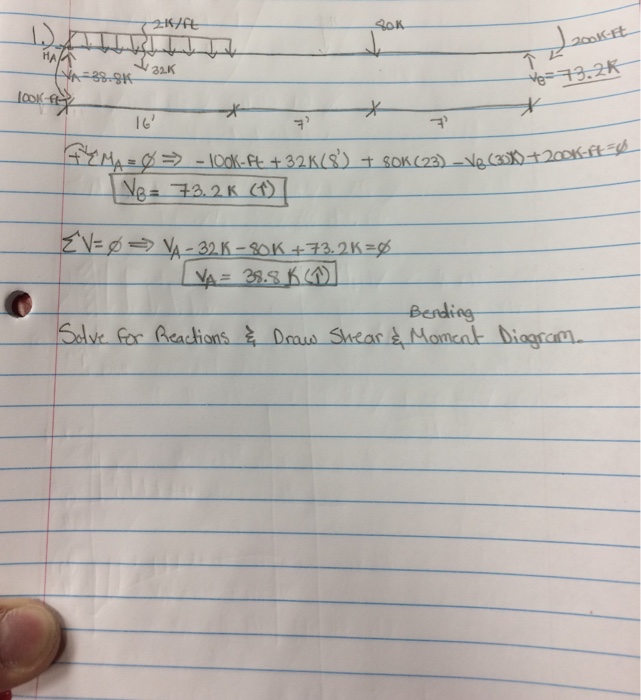 1.) 2K/ft 80K
MA 200K-ft
VA=38.8K 32K VB=73.2K
100K-ft
16' 7' 7'
+ΣMA=∅ ⇒ -100K-ft +32K(8') + 80K(23) -VB(30K)+200K-ft=∅
VB= 73.2K (↑)
ΣV=∅ ⇒ VA-32K-80K+73.2K=∅
VA= 38.8 K(↑)
Bending
Solve for Reactions & Draw Shear & Moment Diagram.